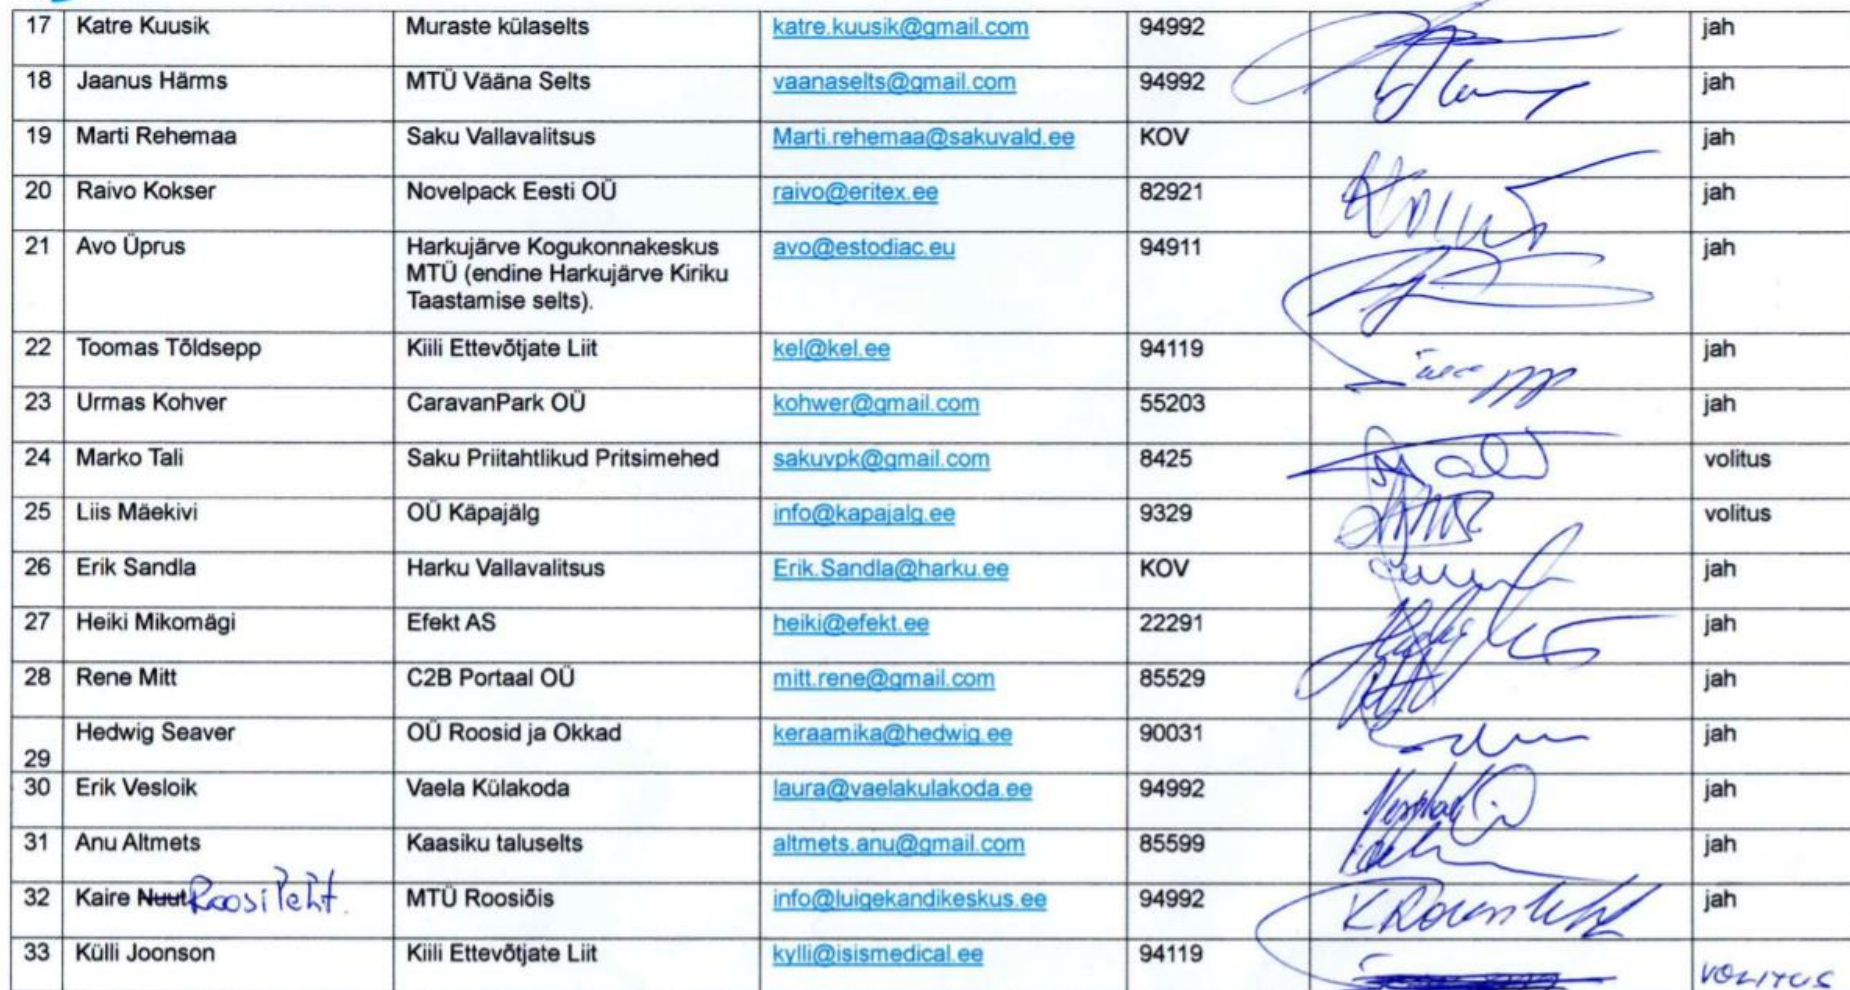 17 Katre Kuusik Muraste külaselts katre.kuusik@gmail.com 94992 jah
18 Jaanus Härms MTÜ Vääna Selts vaanaselts@gmail.com 94992 jah
19 Marti Rehemaa Saku Vallavalitsus Marti.rehemaa@sakuvald.ee KOV jah
20 Raivo Kokser Novelpack Eesti OÜ raivo@eritex.ee 82921 jah
21 Avo Üprus Harkujärve Kogukonnakeskus avo@estodiac.eu 94911 jah
MTÜ (endine Harkujärve Kiriku
Taastamise selts).
22 Toomas Tõldsepp Kiili Ettevõtjate Liit kel@kel.ee 94119 jah
23 Urmas Kohver CaravanPark OÜ kohwer@gmail.com 55203 jah
24 Marko Tali Saku Priitahtlikud Pritsimehed sakuvpk@gmail.com 8425 volitus
25 Liis Mäekivi OÜ Käpajälg info@kapajalg.ee 9329 volitus
26 Erik Sandla Harku Vallavalitsus Erik.Sandla@harku.ee KOV jah
27 Heiki Mikomägi Efekt AS heiki@efekt.ee 22291 jah
28 Rene Mitt C2B Portaal OÜ mitt.rene@gmail.com 85529 jah
29 Hedwig Seaver OÜ Roosid ja Okkad keraamika@hedwig.ee 90031 jah
30 Erik Vesloik Vaela Külakoda laura@vaelakulakoda.ee 94992 jah
31 Anu Altmets Kaasiku taluselts altmets.anu@gmail.com 85599 jah
32 Kaire Nuut Roosileht. MTÜ Roosiõis info@luigekandikeskus.ee 94992 jah
33 Külli Joonson Kiili Ettevõtjate Liit kylli@isismedical.ee 94119 VOLITUS